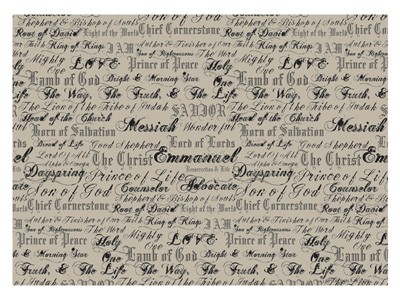 Shepherd & Bishop of Souls Chief Cornerstone
Root of David Light of the World
King of Kings I AM Author & Finisher of Our Faith King of Kings
Mighty One LOVE Prince of Peace Holy Mighty One LOVE
Lamb of God Bright & Morning Star Lamb of God
Life The Way, The Truth, & The Life The Way,
The Lion of the Tribe of Judah SAVIOR The Lion of the Tribe of Judah
Head of the Church Messiah Wonderful Head of the Church
Horn of Salvation Lord of Lords Horn of Salvation
Good Shepherd Good Shepherd
Lord Of All The Christ Emmanuel Lord Of All The Christ
Alpha & Omega Resurrection & Life
Dayspring Prince of Life Dayspring
Son of God Counselor Advocate Son of God
Chief Cornerstone Shepherd & Bishop of Souls Chief Cornerstone
Root of David Light of the World Root of David
Author & Finisher of Our Faith King of Kings I AM Author & Finisher of Our Faith
Sun of Righteousness
Prince of Peace Holy Mighty One LOVE Prince of Peace Holy
Bright & Morning Star Lamb of God Bright & Morning Star
Truth, & The Life The Way, The Truth, & The Life